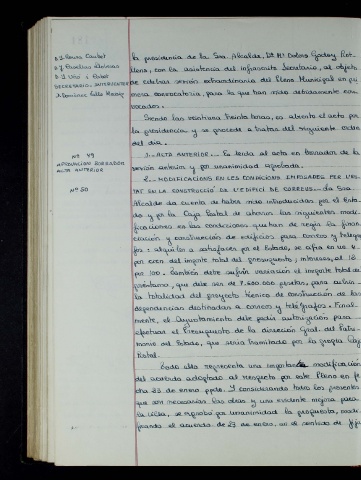 D. J. Roura Caulet
SECRETARIO, INTERVENTOR
la presidencia de la Sra. Alcalde, Dª Mª Dolors Godoy Rot-
llens, con la asistencia del infrascrito Secretario, al objeto
de celebrar sesión extraordinaria del Pleno Municipal en pri-
mera convocatoria, para la que han sido debidamente con-
vocados.
Siendo las veintiuna treinta horas, es abierto el acto por
la presidencia y se procede a tratar del siguiente orden
del día.
Nº 49
APROBACION BORRADOR
ACTA ANTERIOR
1.- ACTA ANTERIOR.- Es leída el acta en borrador de la
sesión anterior y por unanimidad aprobada.
Nº 50
2.- MODIFICACIONS EN LES CONDICIONS IMPOSADES PER L'ES-
TAT EN LA CONSTRUCCIÓ DE L'EDIFICI DE CORREUS.- La Sra.
Alcalde da cuenta de haber sido introducidas por el Esta-
do y por la Caja Postal de ahorros las siguientes modi-
ficaciones en las condiciones que han de regir la finan-
ciación y construcción de edificios para Correos y Telégra-
fos: alquiler a satisfacer por el Estado, se cifra en un 4
por cien del importe total del presupuesto; intereses, al 12
por 100. También debe sufrir variación el importe total de
préstamo, que debe ser de 7.600.000 pesetas, para cubrir
la totalidad del proyecto técnico de construcción de las
dependencias destinadas a correos y telégrafos. Final-
mente, el Ayuntamiento debe pedir autorización para
efectuar el Presupuesto de la dirección Gral. del Patri-
monio del Estado, que sería tramitado por la propia Caja
Postal.
Todo ello representa una importante modificación
del acuerdo adoptado al respecto por este Pleno en fe-
cha 23 de enero ppdo. Y considerando todos los presentes
que son necesarias las obras y una evidente mejora para
la Villa, se aprobó por unanimidad la propuesta, modi-
ficando el acuerdo de 23 de enero, en el sentido de fijar